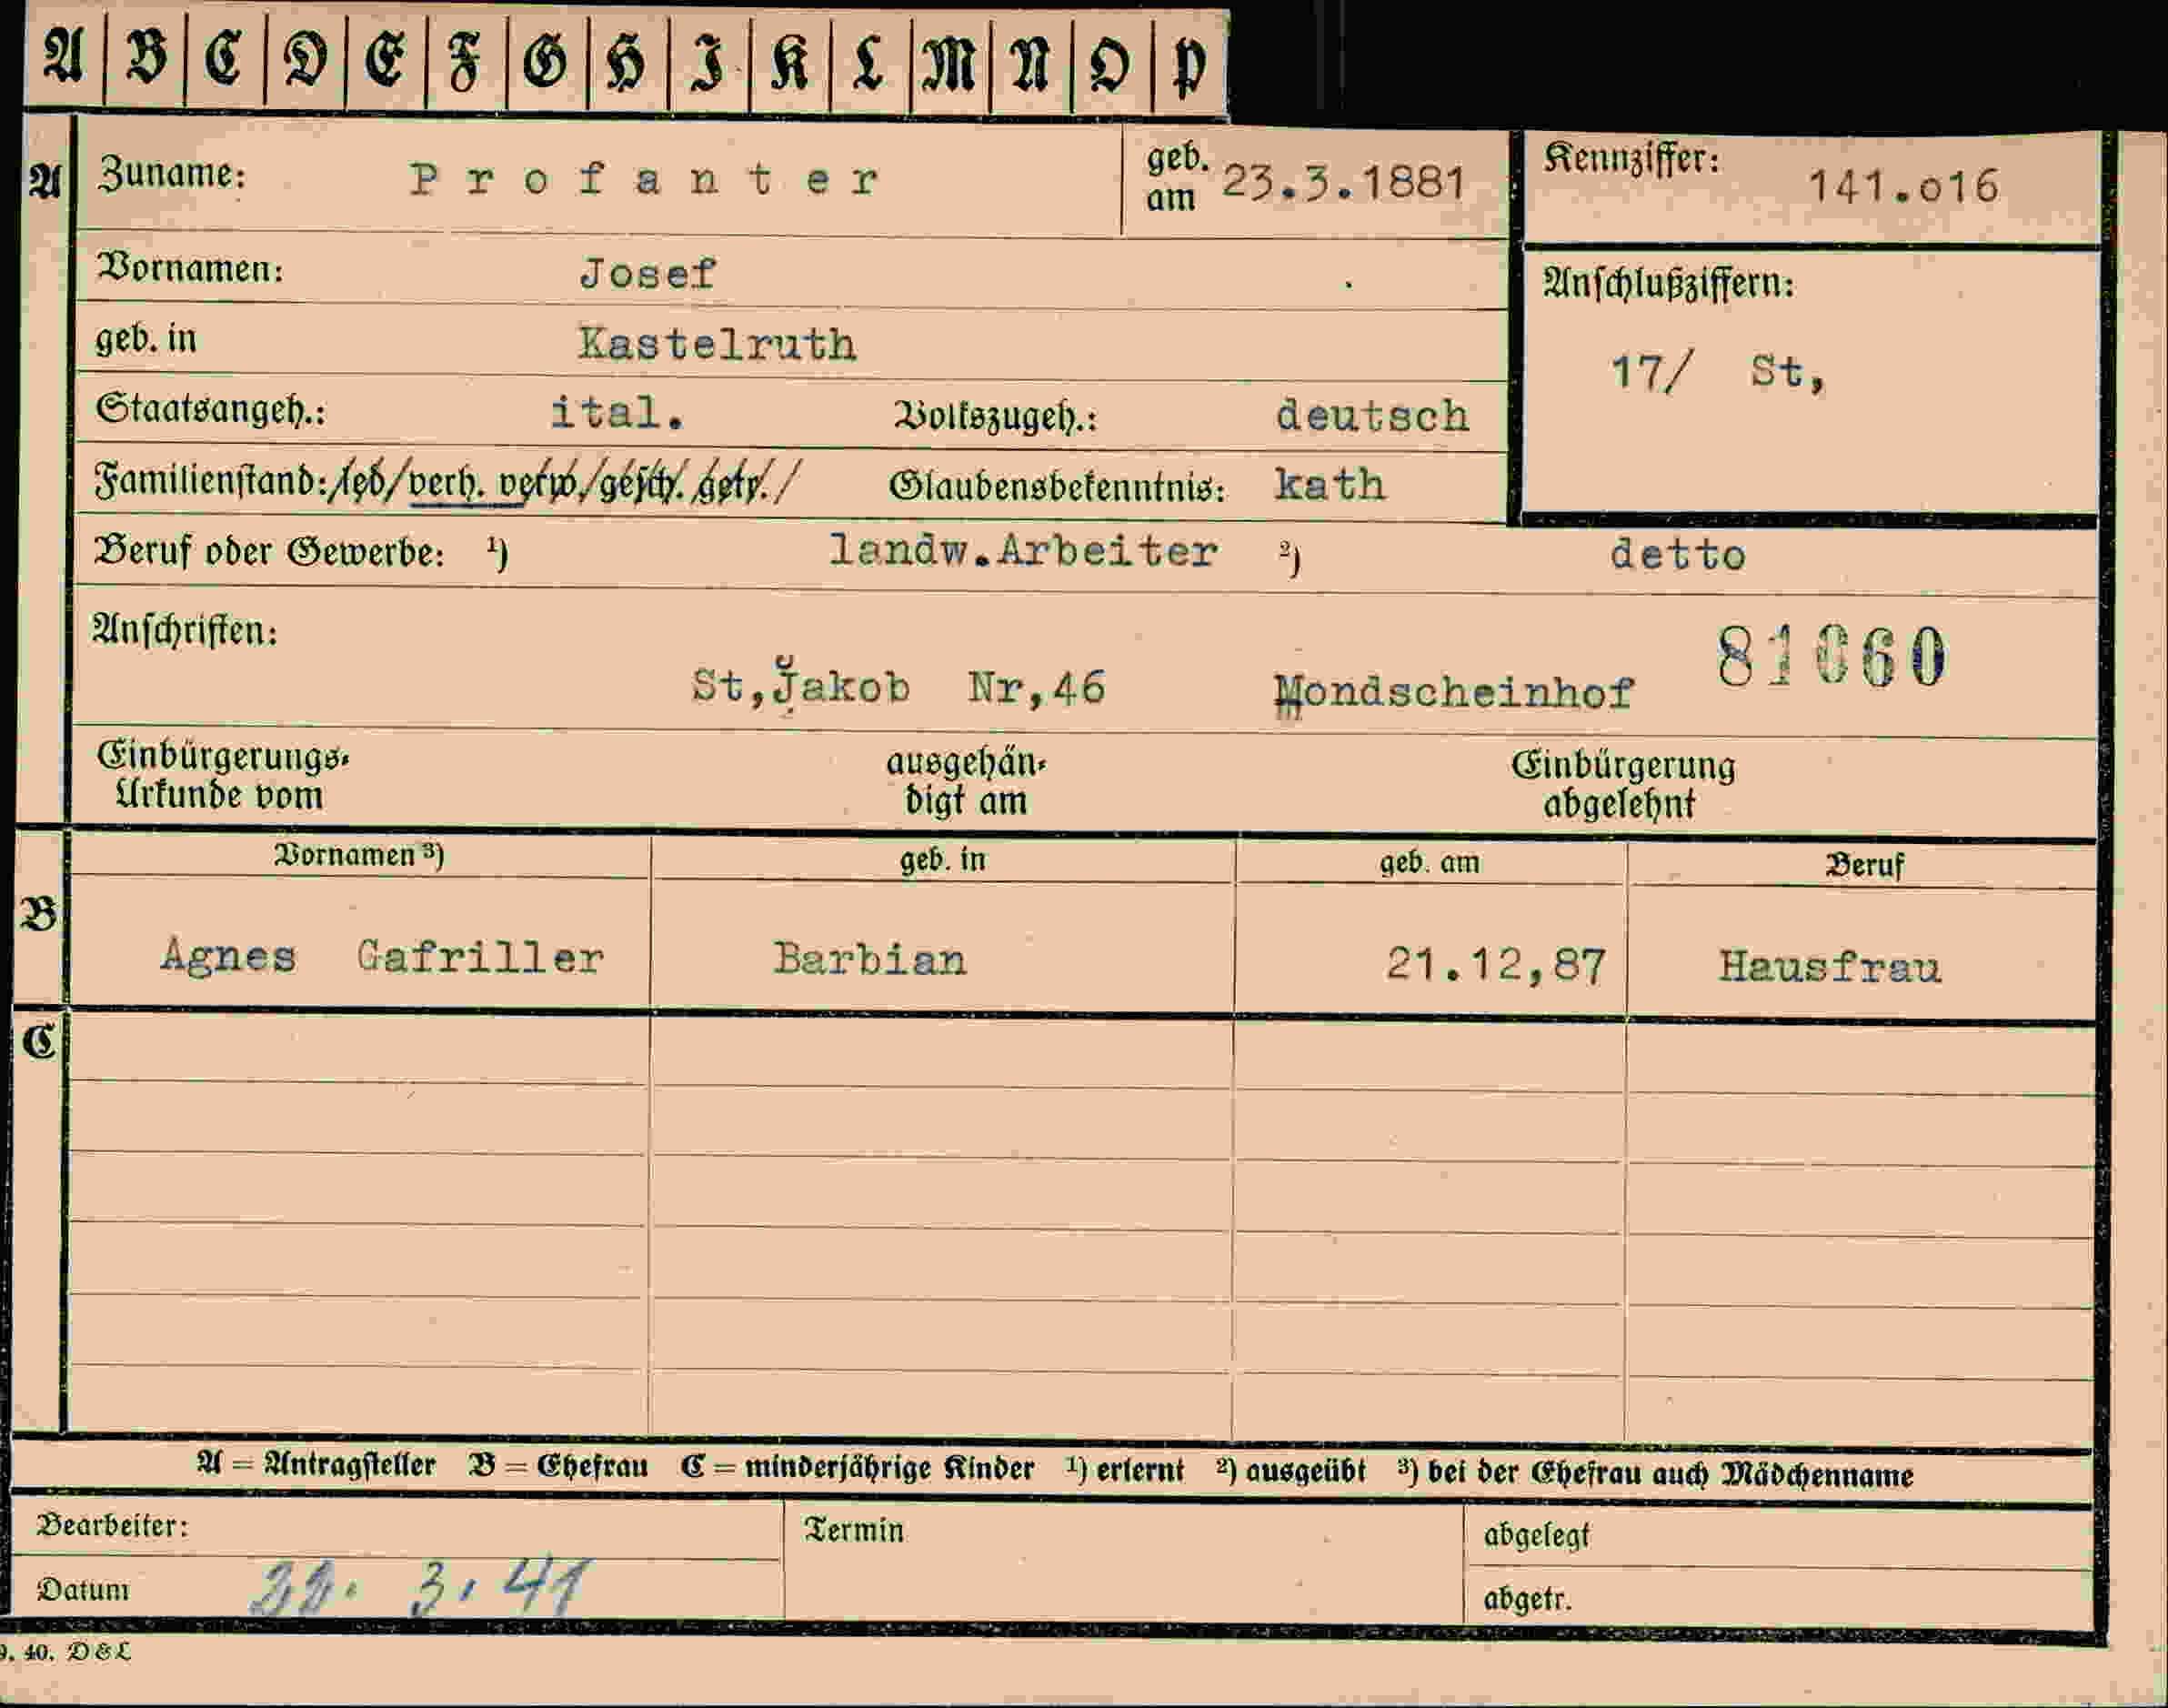 A B C D E F G H I K L M N O P
A Zuname: Profanter geb. am 23.3.1881 Kennziffer: 141.016
Vornamen: Josef
Anschlußziffern:
geb. in Kastelruth
17/ St,
Staatsangeh.: ital. Volkszugeh.: deutsch
Familienstand: led/verh. verw./gesch. getr./ Glaubensbekenntnis: kath
Beruf oder Gewerbe: ¹) landw.Arbeiter ²) detto
Anschriften:
St,Jakob Nr,46 Mondscheinhof 81060
Einbürgerungs- Urkunde vom
ausgehän- digt am
Einbürgerung abgelehnt
B Vornamen ³) geb. in geb. am Beruf
Agnes Gafriller Barbian 21.12,87 Hausfrau
C
A = Antragsteller B = Ehefrau C = minderjährige Kinder ¹) erlernt ²) ausgeübt ³) bei der Ehefrau auch Mädchenname
Bearbeiter: Termin abgelegt
Datum 3.41 abgetr.
40. D&L